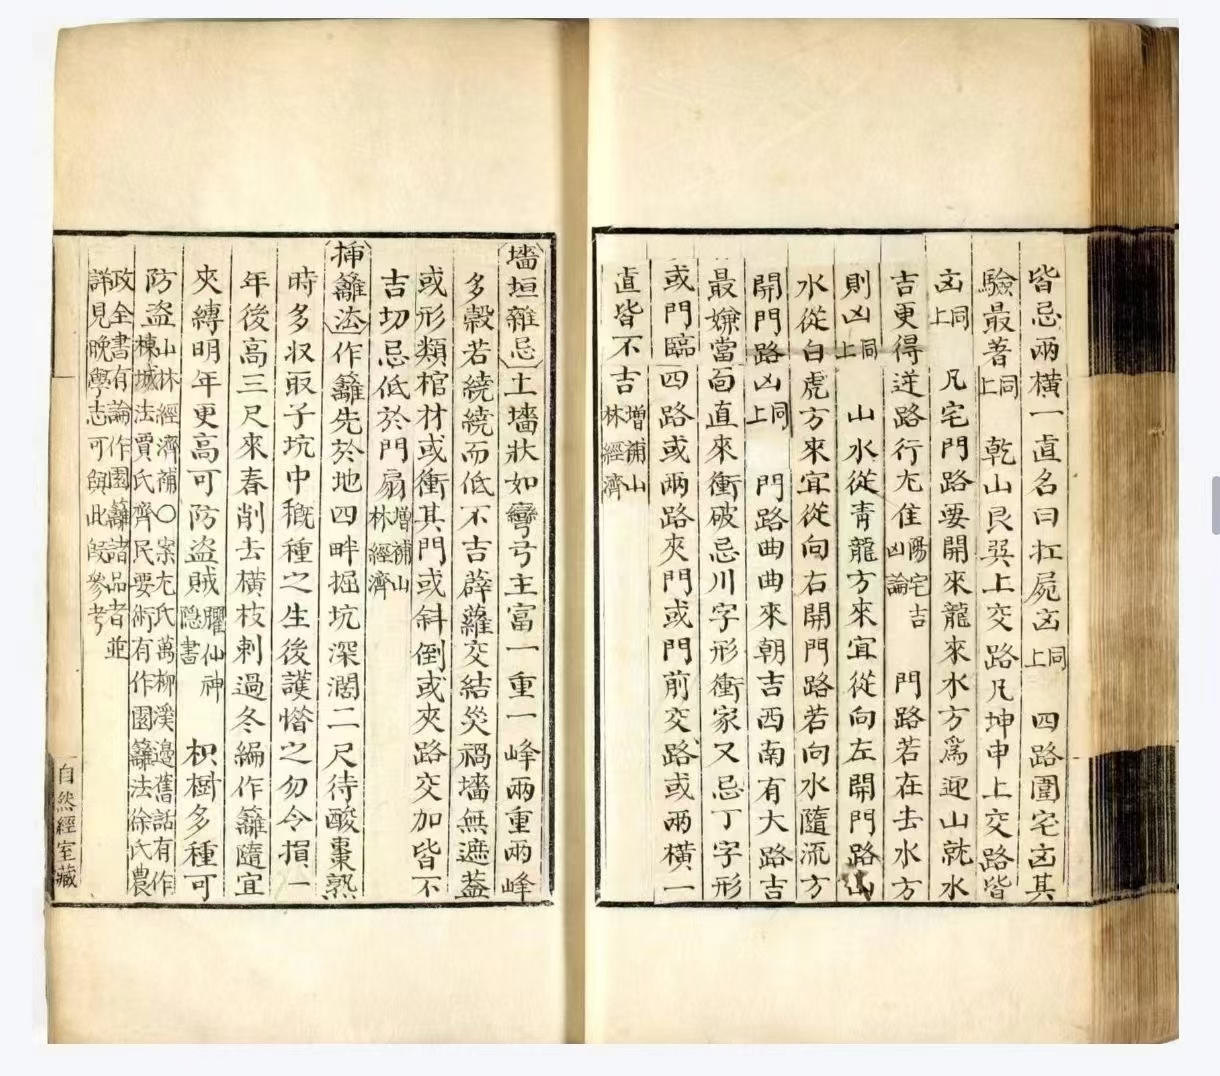 皆忌兩橫一直名曰扛屍凶同上 四路圍宅凶其
驗最著同上 乾山艮巽上交路凡坤申上交路皆
凶同上 凡宅門路要開來龍來水方爲迎山就水
吉更得逆路行尤佳陽宅吉凶論 門路若在去水方
則凶同上 山水從靑龍方來宜從向左開門路山
水從白虎方來宜從向右開門路若向水隨流方
開門路凶同上 門路曲曲來朝吉西南有大路吉
最嫌當面直來衝破忌川字形衝家又忌丁字形
或門臨四路或兩路夾門或門前交路或兩橫一
直皆不吉增補山林經濟
墻垣雜忌土墻狀如彎弓主富一重一峰兩重兩峰
多穀若繞繞而低不吉薜蘿交結災禍墻無遮蓋
或形類棺材或衝其門或斜倒或夾路交加皆不
吉切忌低於門扇增補山林經濟
揷籬法作籬先於地四畔掘坑深濶二尺待酸棗熟
時多收取子坑中穊種之生後護惜之勿令損一
年後高三尺來春削去橫枝剌過冬編作籬隨宜
夾縛明年更高可防盜賊臞仙神隱書 枳樹多種可
防盜山林經濟補〇案尤氏萬柳溪邊舊話有作
棟城法賈氏齊民要術有作園籬法徐氏農
政全書有論作園籬諸品者並
詳見晩學志可與此䪺參考
自然經室藏